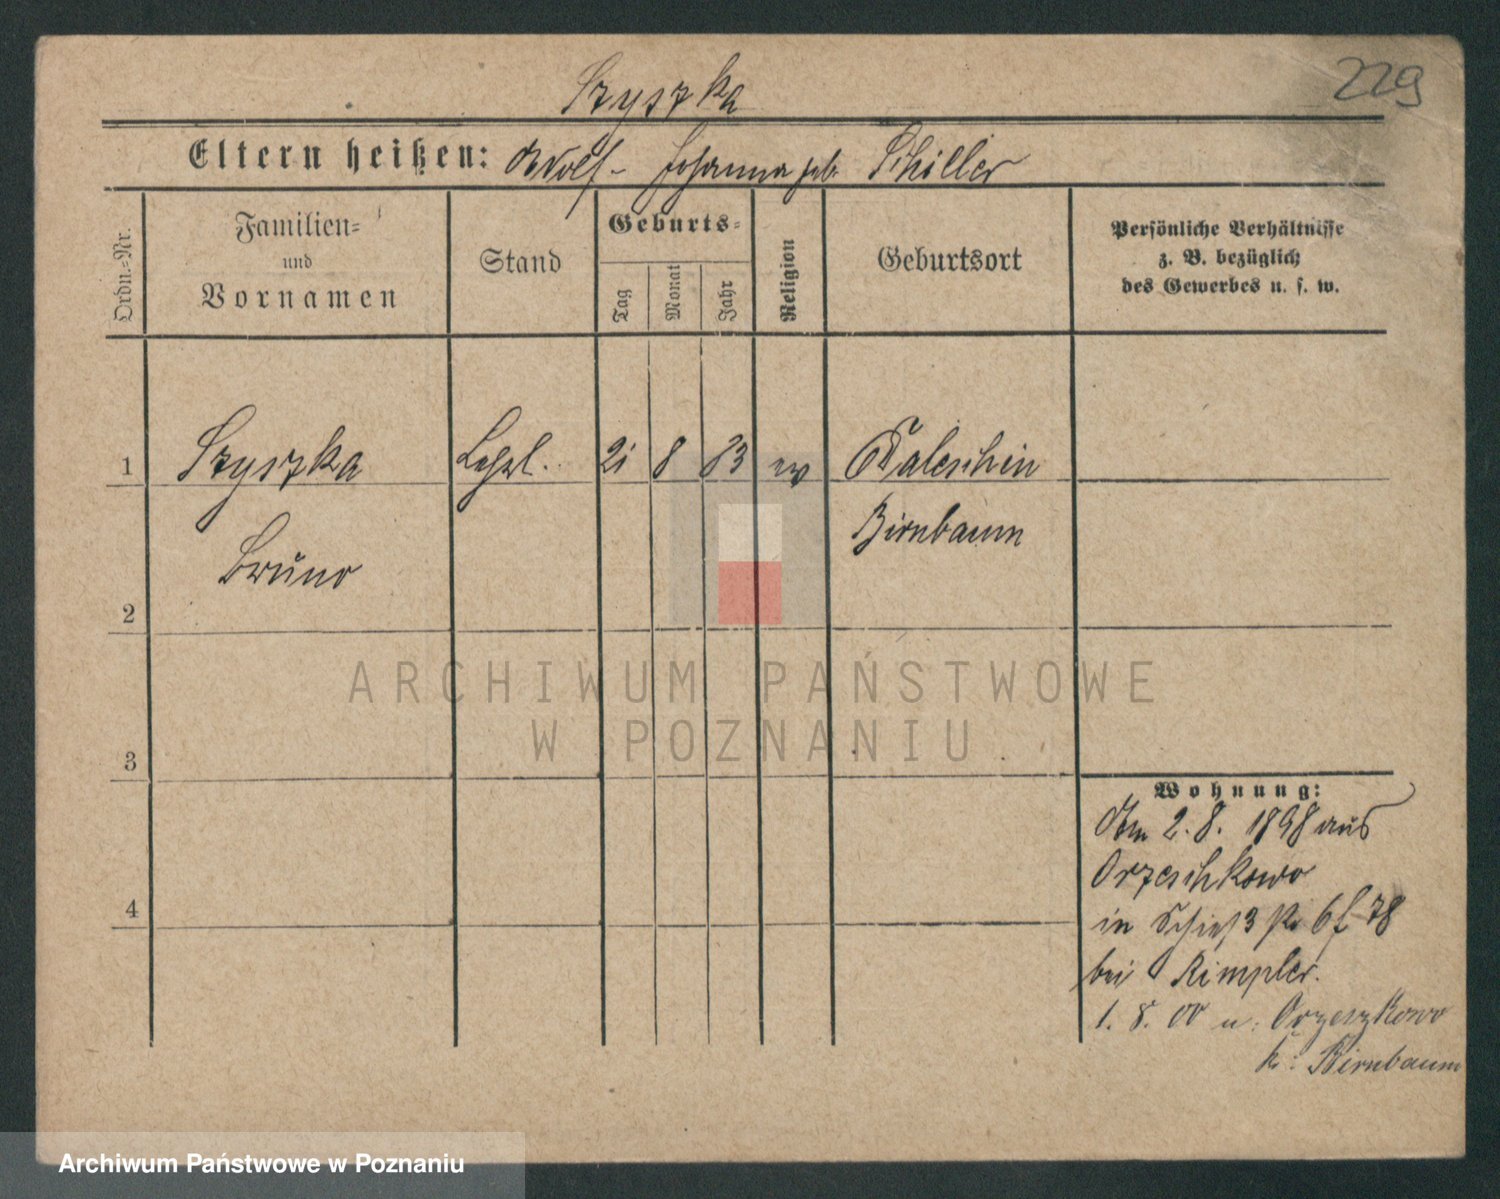 229
Szyszka
Eltern heißen: Adolf - Johanna geb. Schiller
Ordn.-Nr.
Familien-
und
Vornamen
Stand
Geburts-
Tag
Monat
Jahr
Religion
Geburtsort
Persönliche Verhältnisse
z. B. bezüglich
des Gewerbes u. s. w.
1 Szyszka Lehrl. 21 8 83 ev
Birnbaum
Bruno
2
3
4
Wohnung:
Am 2. 8. 1898 aus
Orzeschkowo
in
bei Rimpler.
1. 8. 00 n. Orzeszkowo
Kr. Birnbaum
ARCHIWUM PAŃSTWOWE
W POZNANIU
Archiwum Państwowe w Poznaniu